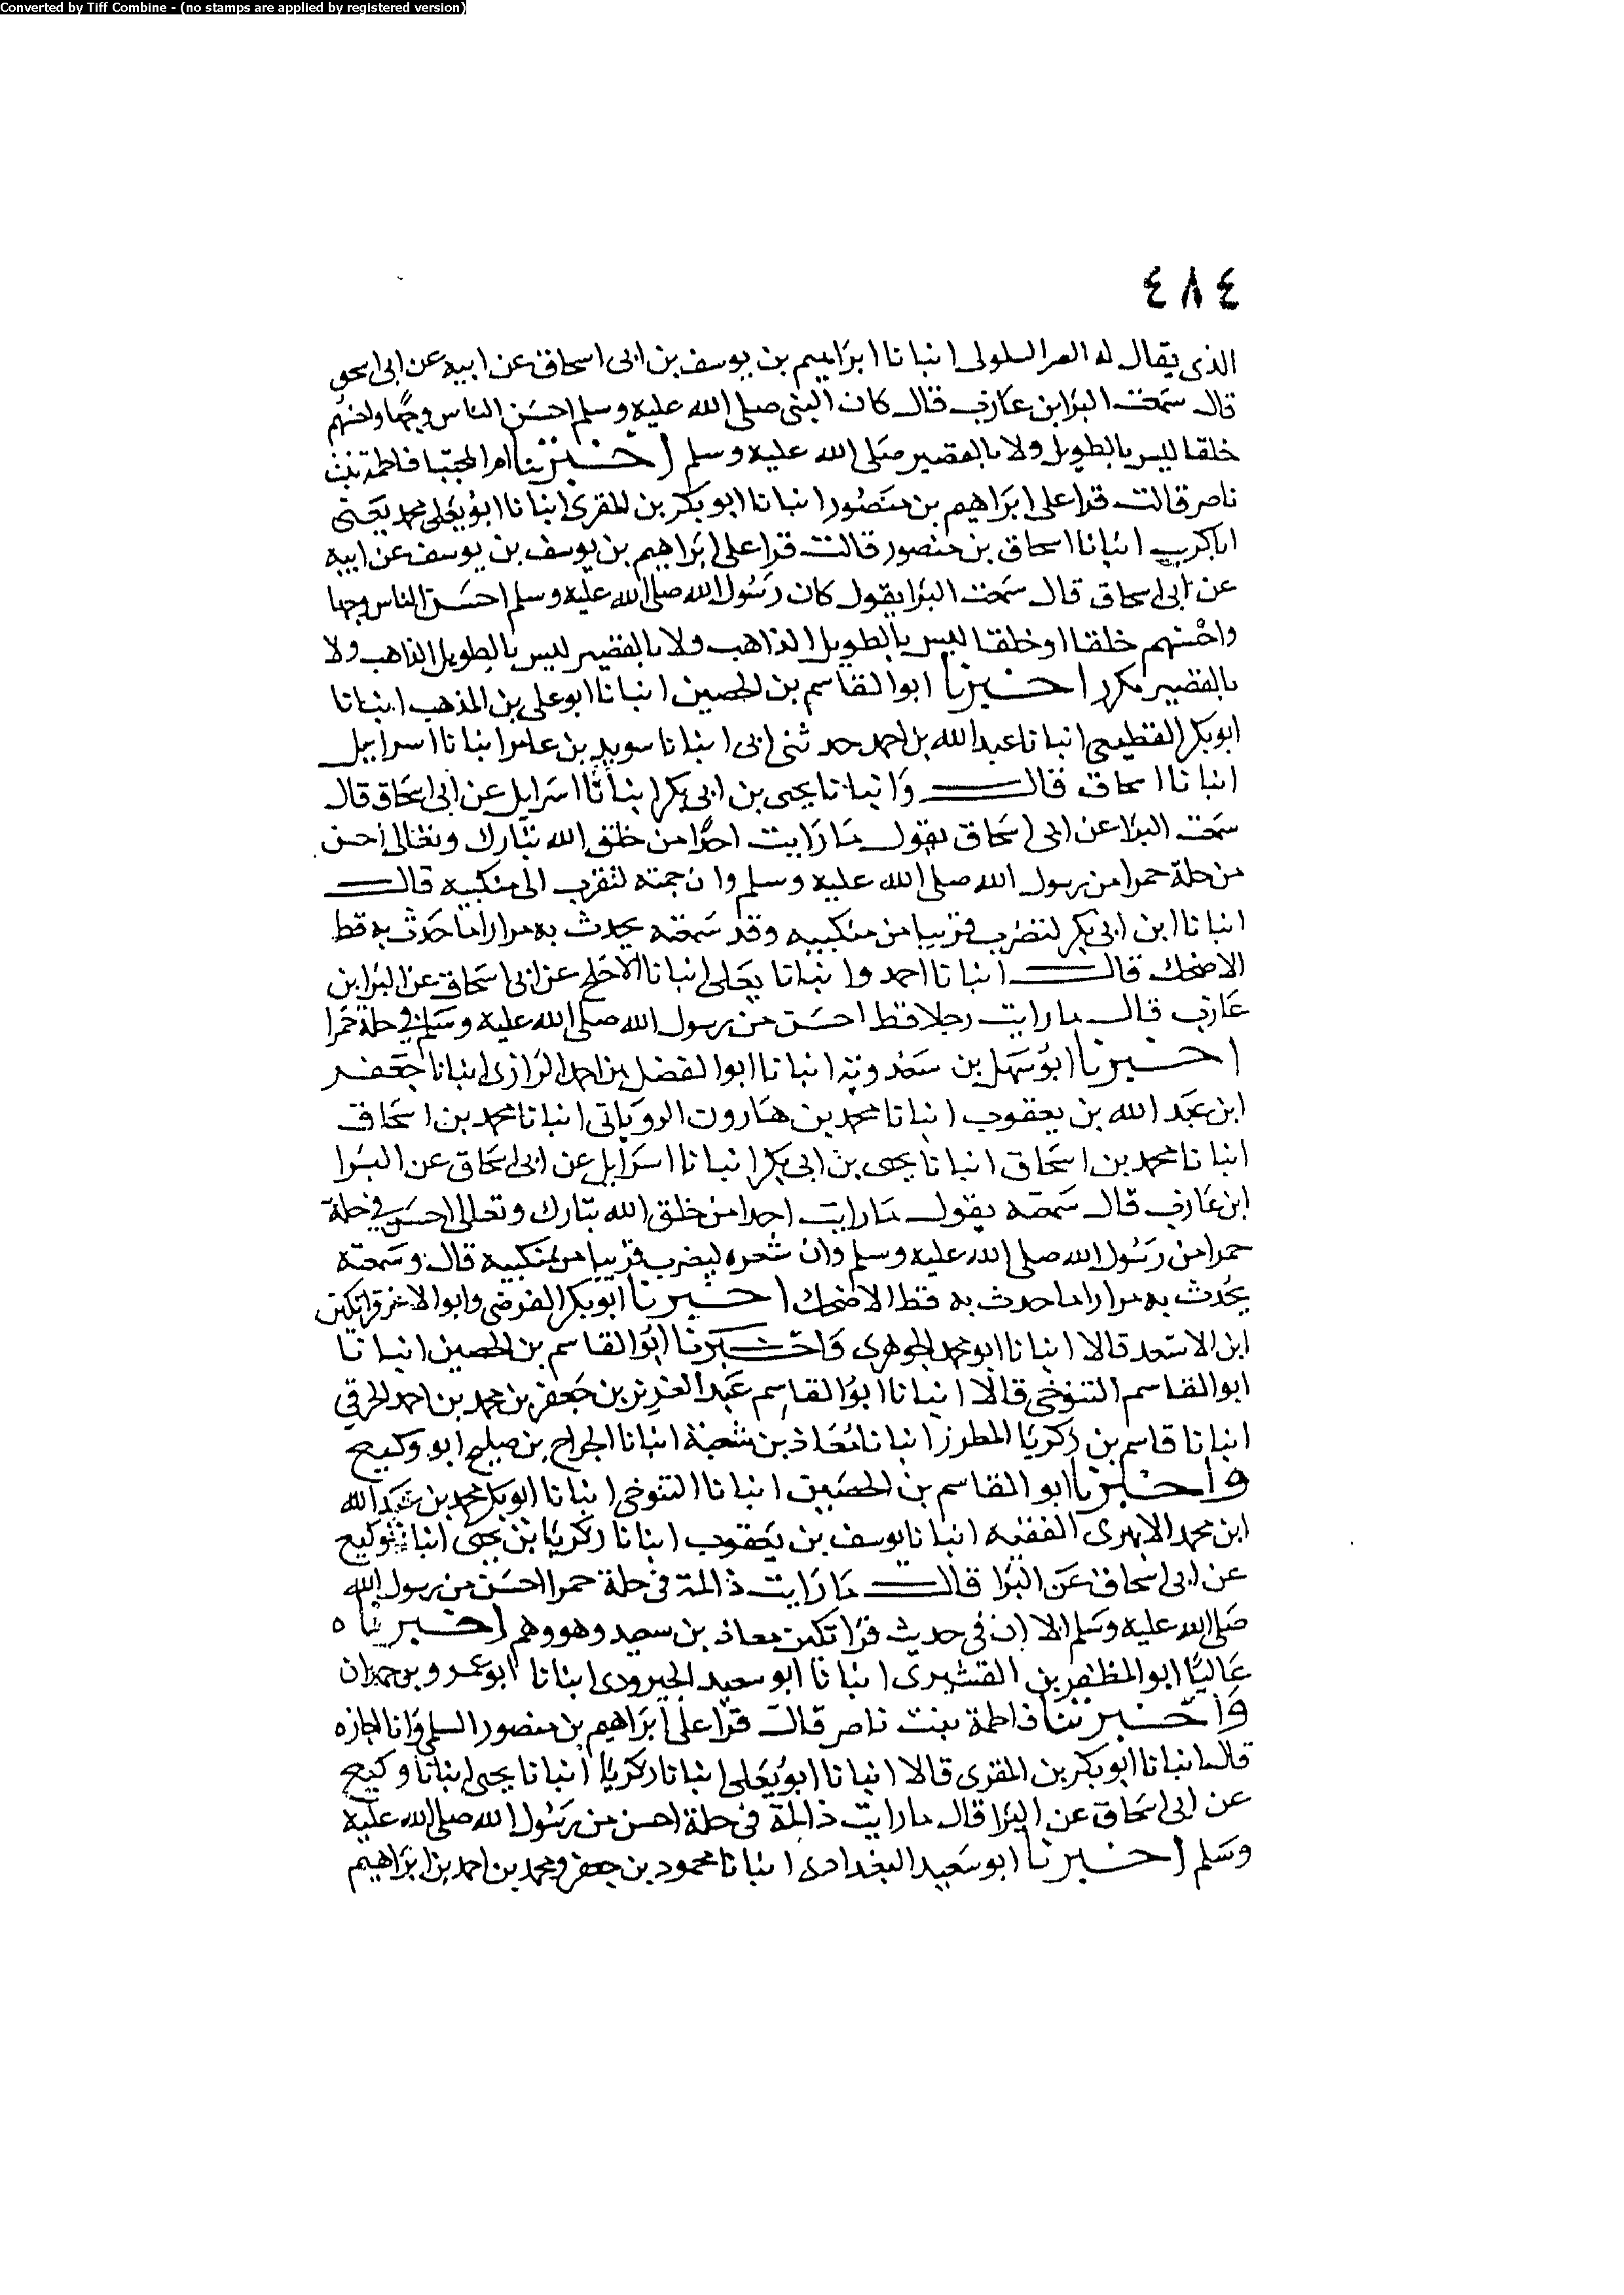 Converted by Tiff Combine - (no stamps are applied by registered version)
٤٨٤
الذى يقال له السلولى انبانا ابراهيم بن يوسف بن ابى اسحاق عن ابيه عن ابى اسحق
قال سمعت البرا بن عازب قال كان النبى صلى الله عليه وسلم احسن الناس وجها واحسنهم
خلقا ليس بالطويل ولا بالقصير صلى الله عليه وسلم اخبرتنا ام المجتبا فاطمة بنت
ناصر قالت قرا على ابراهيم بن منصور انبانا ابو بكر بن المقرى انبانا ابو يعلى محمد يعنى
ابا كريب انبانا اسحاق بن منصور قالت قرا على ابراهيم بن يوسف بن يوسف عن ابيه
عن ابى اسحاق قال سمعت البرا يقول كان رسول الله صلى الله عليه وسلم احسن الناس وجها
واحسنهم خلقا او خلقا ليس بالطويل الذاهب ولا بالقصير ليس بالطويل الذاهب ولا
بالقصير مكرر اخبرنا ابو القاسم بن الحصين انبانا ابو على بن المذهب انبانا
ابو بكر القطيعى انبانا عبد الله بن احمد حدثنى ابى انبانا سويد بن عامر انبانا اسراييل
انبانا اسحاق قال وانبانا يحى بن ابى بكر انبانا اسرايل عن ابى اسحاق قال
سمعت البرا عن ابى اسحاق يقول ما رايت احدا من خلق الله تبارك وتعالى احسن
من حلة حمرا من رسول الله صلى الله عليه وسلم وان جمته لتقرب الى منكبيه قال
انبانا ابن ابى بكر لتضرب قريبا من منكبيه وقد سمعته يحدث به مرارا ما حدث به قط
الا ضحك قال انبانا احمد وانبانا يعلى انبانا الاجلح عن ابى اسحاق عن البرا بن
عازب قال ما رايت رجلا قط احسن من رسول الله صلى الله عليه وسلم فى حلة حمرا
اخبرنا ابو سهل بن سعدويه انبانا ابو الفضل بن احمد الرازى انبانا جعفر
ابن عبد الله بن يعقوب انبانا محمد بن هارون الرويانى انبانا محمد بن اسحاق
انبانا محمد بن اسحاق انبانا يحى بن ابى بكر انبانا اسرايل عن ابى اسحاق عن البرا
ابن عازب قال سمعته يقول ما رايت احدا من خلق الله تبارك وتعالى احسن فى حلة
حمرا من رسول الله صلى الله عليه وسلم وان شعره ليضرب قريبا من منكبيه قال وسمعته
يحدث به مرارا ما حدث به قط الا ضحك اخبرنا ابو بكر الفرضى وابو الاغر قراتكين
ابن الاسعد قالا انبانا ابو محمد الجوهرى واخبرنا ابو القاسم بن الحصين انبانا
ابو القاسم التنوخى قالا انبانا ابو القاسم عبد العزيز بن جعفر بن محمد بن احمد الخرقى
انبانا قاسم بن زكريا المطرز انبانا معاذ بن شعبة انبانا الجراح بن مليح ابو وكيع
واخبرنا ابو القاسم بن الحصين انبانا التنوخى انبانا ابو بكر محمد بن عبد الله
ابن محمد الابهرى الفقيه انبانا يوسف بن يعقوب انبانا زكريا بن يحى انبانا ابو وكيع
عن ابى اسحاق عن البرا قال ما رايت ذا لمة فى حلة حمرا احسن من رسول الله
صلى الله عليه وسلم الا ان فى حديث قراتكين معاذ بن سعيد وهو وهم اخبرناه
عاليا ابو المظفر بن القشيرى انبانا ابو سعيد الجيرودى انبانا ابو عمرو بن حمدان
واخبرتنا فاطمة بنت ناصر قالت قرا على ابراهيم بن منصور السلمى وانا حاضره
قال انبانا ابو بكر بن المقرى قالا انبانا ابو يعلى انبانا زكريا انبانا يحى انبانا وكيع
عن ابى اسحاق عن البرا قال ما رايت ذا لمة فى حلة احسن من رسول الله صلى الله عليه
وسلم اخبرنا ابو سعيد البغدادى انبانا محمود بن جعفر ومحمد بن احمد بن ابراهيم